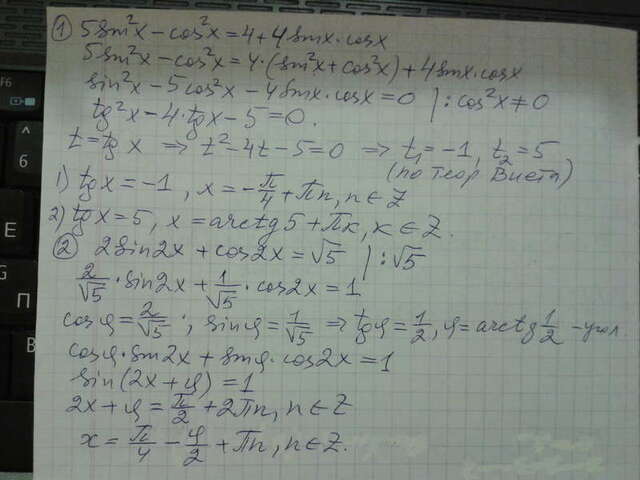 ① 5sin²x − cos²x = 4 + 4sinx·cosx
5sin²x − cos²x = 4·(sin²x + cos²x) + 4sinx·cosx
sin²x − 5cos²x − 4sinx·cosx = 0 |:cos²x ≠ 0
tg²x − 4·tgx − 5 = 0.
t = tg x ⇒ t² − 4t − 5 = 0 ⇒ t₁ = −1, t₂ = 5
(по теор Виета)
1) tgx = −1, x = −π/4 + πn, n ∈ Z
2) tgx = 5, x = arctg5 + πк, к ∈ Z.
② 2sin2x + cos2x = √5 |:√5
2/√5·sin2x + 1/√5·cos2x = 1
cosφ = 2/√5; sinφ = 1/√5 ⇒ tgφ = 1/2, φ = arctg 1/2 − угол
cosφ·sin2x + sinφ·cos2x = 1
sin(2x + φ) = 1
2x + φ = π/2 + 2πn, n ∈ Z
x = π/4 − φ/2 + πn, n ∈ Z.
F6
^
6
E
G
П